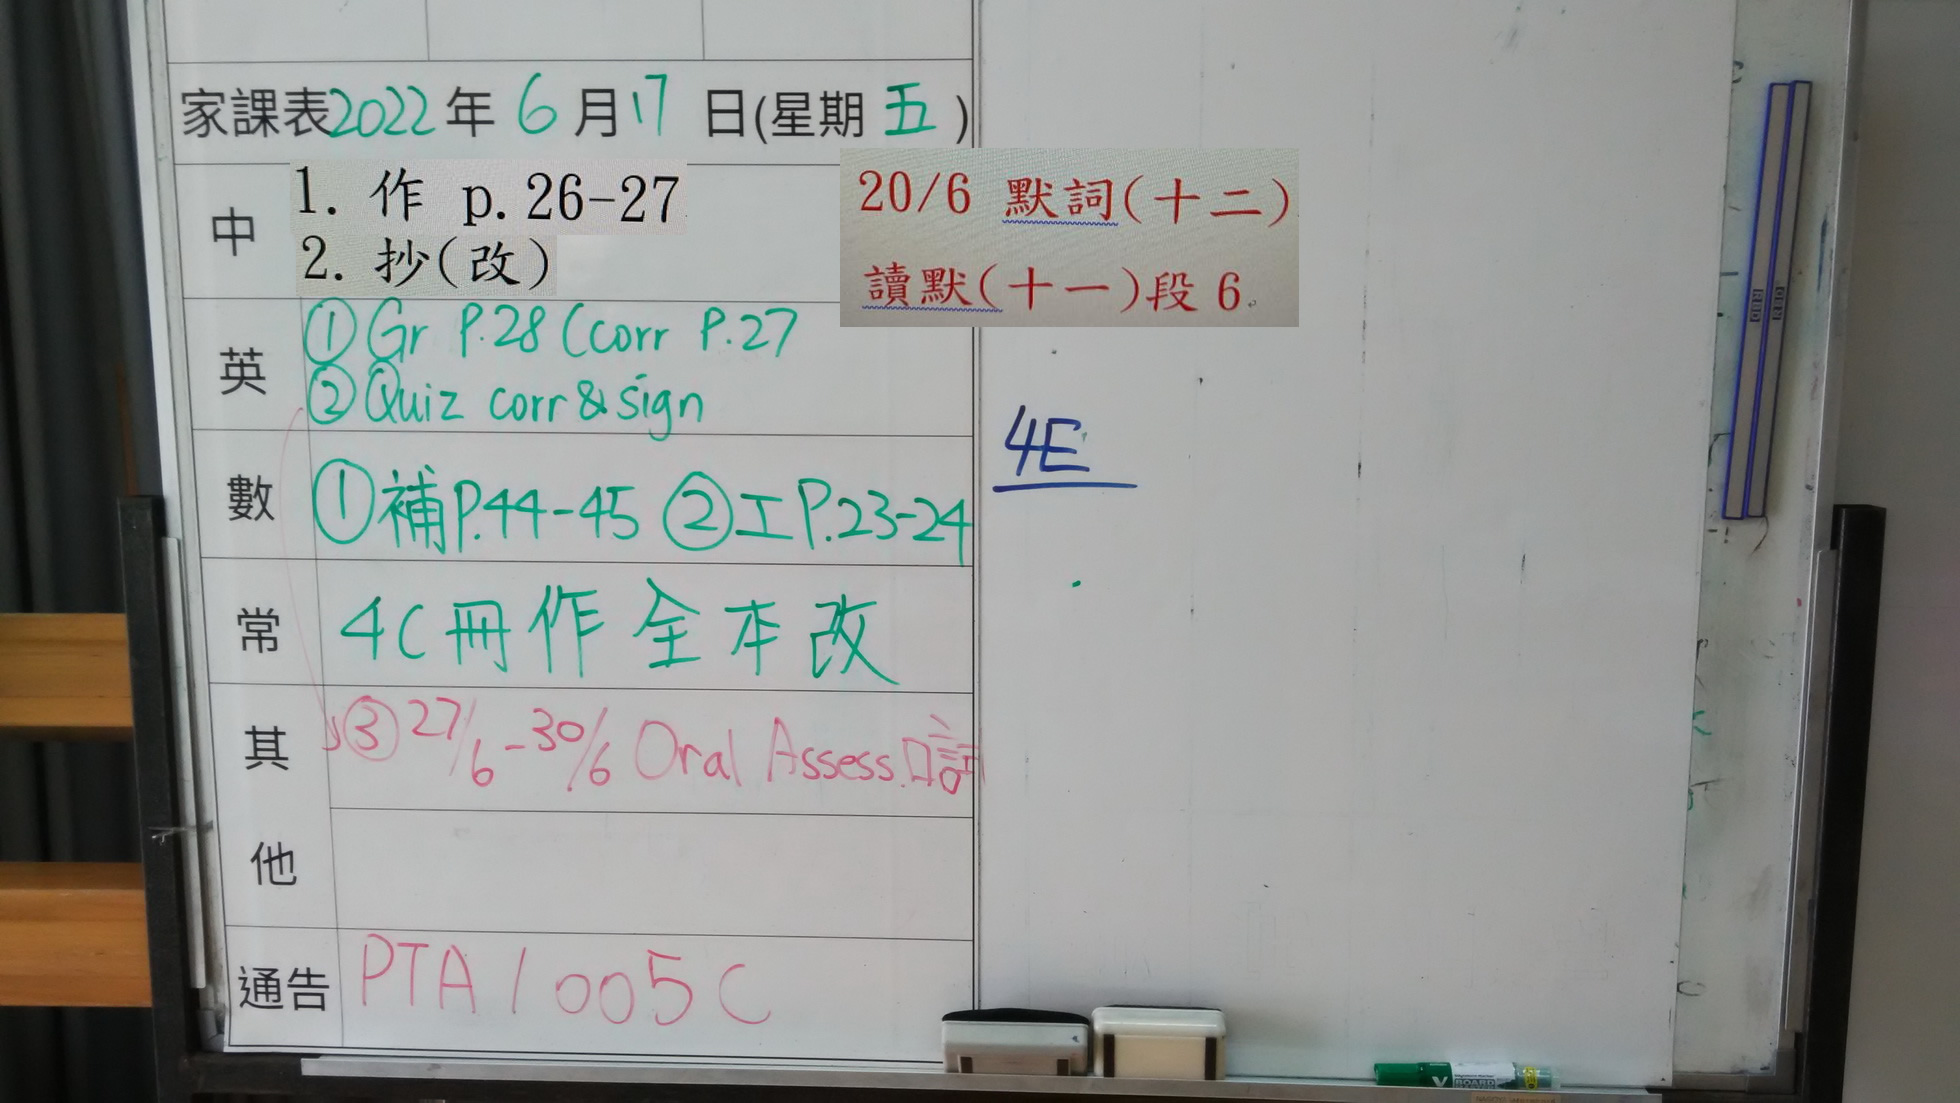 家課表2022年6月17日(星期五)
中
1. 作 p.26-27
2. 抄(改)
20/6 默詞(十二)
讀默(十一)段6
英
① Gr P.28 (corr P.27
② Quiz corr & sign
4E
數
①補P.44-45 ②工P.23-24
常
4C冊作全本改
其他
③ 27/6-30/6 Oral Assess.口試
通告
PTA/005C
V BOARD